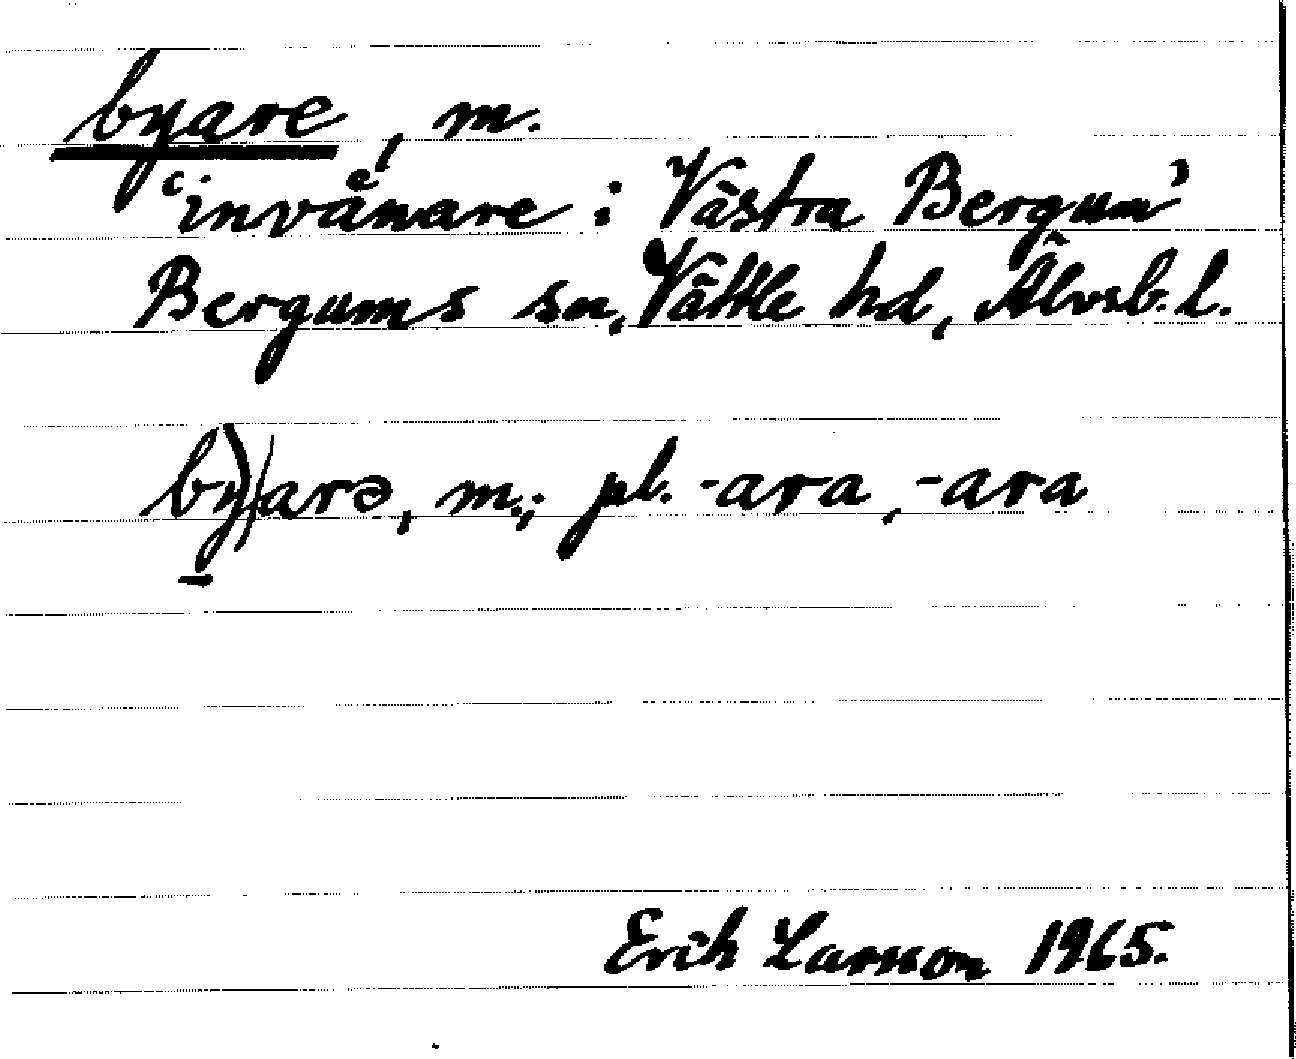 byare, m.
‘invånare i Västra Bergum’
Bergums sn, Vättle hd, Älvsb. l.
by)arə, m.; pl. -ara, -ara
Erik Larsson 1965.